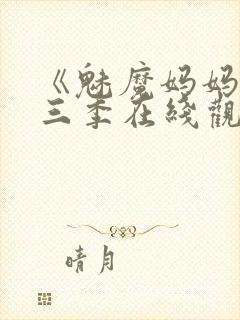 《魅魔妈妈
三季在线觀
晴月